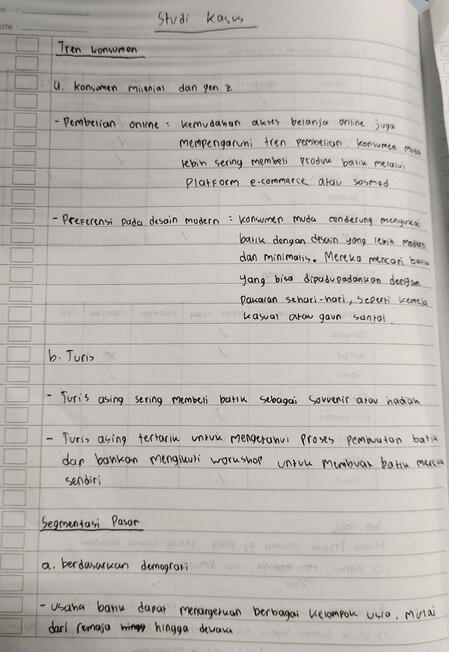 Studi Kasus
Tren konsumen
a. konsumen milenial dan gen z
- Pembelian online : kemudahan akses belanja online juga
mempengaruhi tren pembelian. Konsumen muda
lebih sering membeli produk batik melalui
platform e-commerce atau sosmed
- Preferensi pada desain modern : konsumen muda cenderung menyukai
batik dengan desain yang lebih modern
dan minimalis. Mereka mencari batik
yang bisa dipadupadankan dengan
pakaian sehari-hari, seperti kemeja
kasual atau gaun santai.
b. Turis
- Turis asing sering membeli batik sebagai souvenir atau hadiah
- Turis asing tertarik untuk mengetahui proses pembuatan batik
dan bahkan mengikuti workshop untuk membuat batik mereka
sendiri
Segmentasi Pasar
a. berdasarkan demografi
- usaha batik dapat menargetkan berbagai kelompok usia. Mulai
dari remaja hingga dewasa